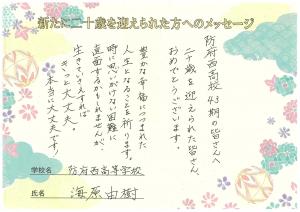 新たに二十歳を迎えられた方へのメッセージ
防府西高校43期の皆さんへ
二十歳を迎えられた皆さん、
おめでとうございます。
豊かな幸福につつまれた
人生となることを祈ります。
時に思いがけない困難に
直面するかもしれませんが、
生きていきさえすれば
きっと大丈夫。
本当に大丈夫です!
学校名 防府西高等学校
氏名 海原由樹